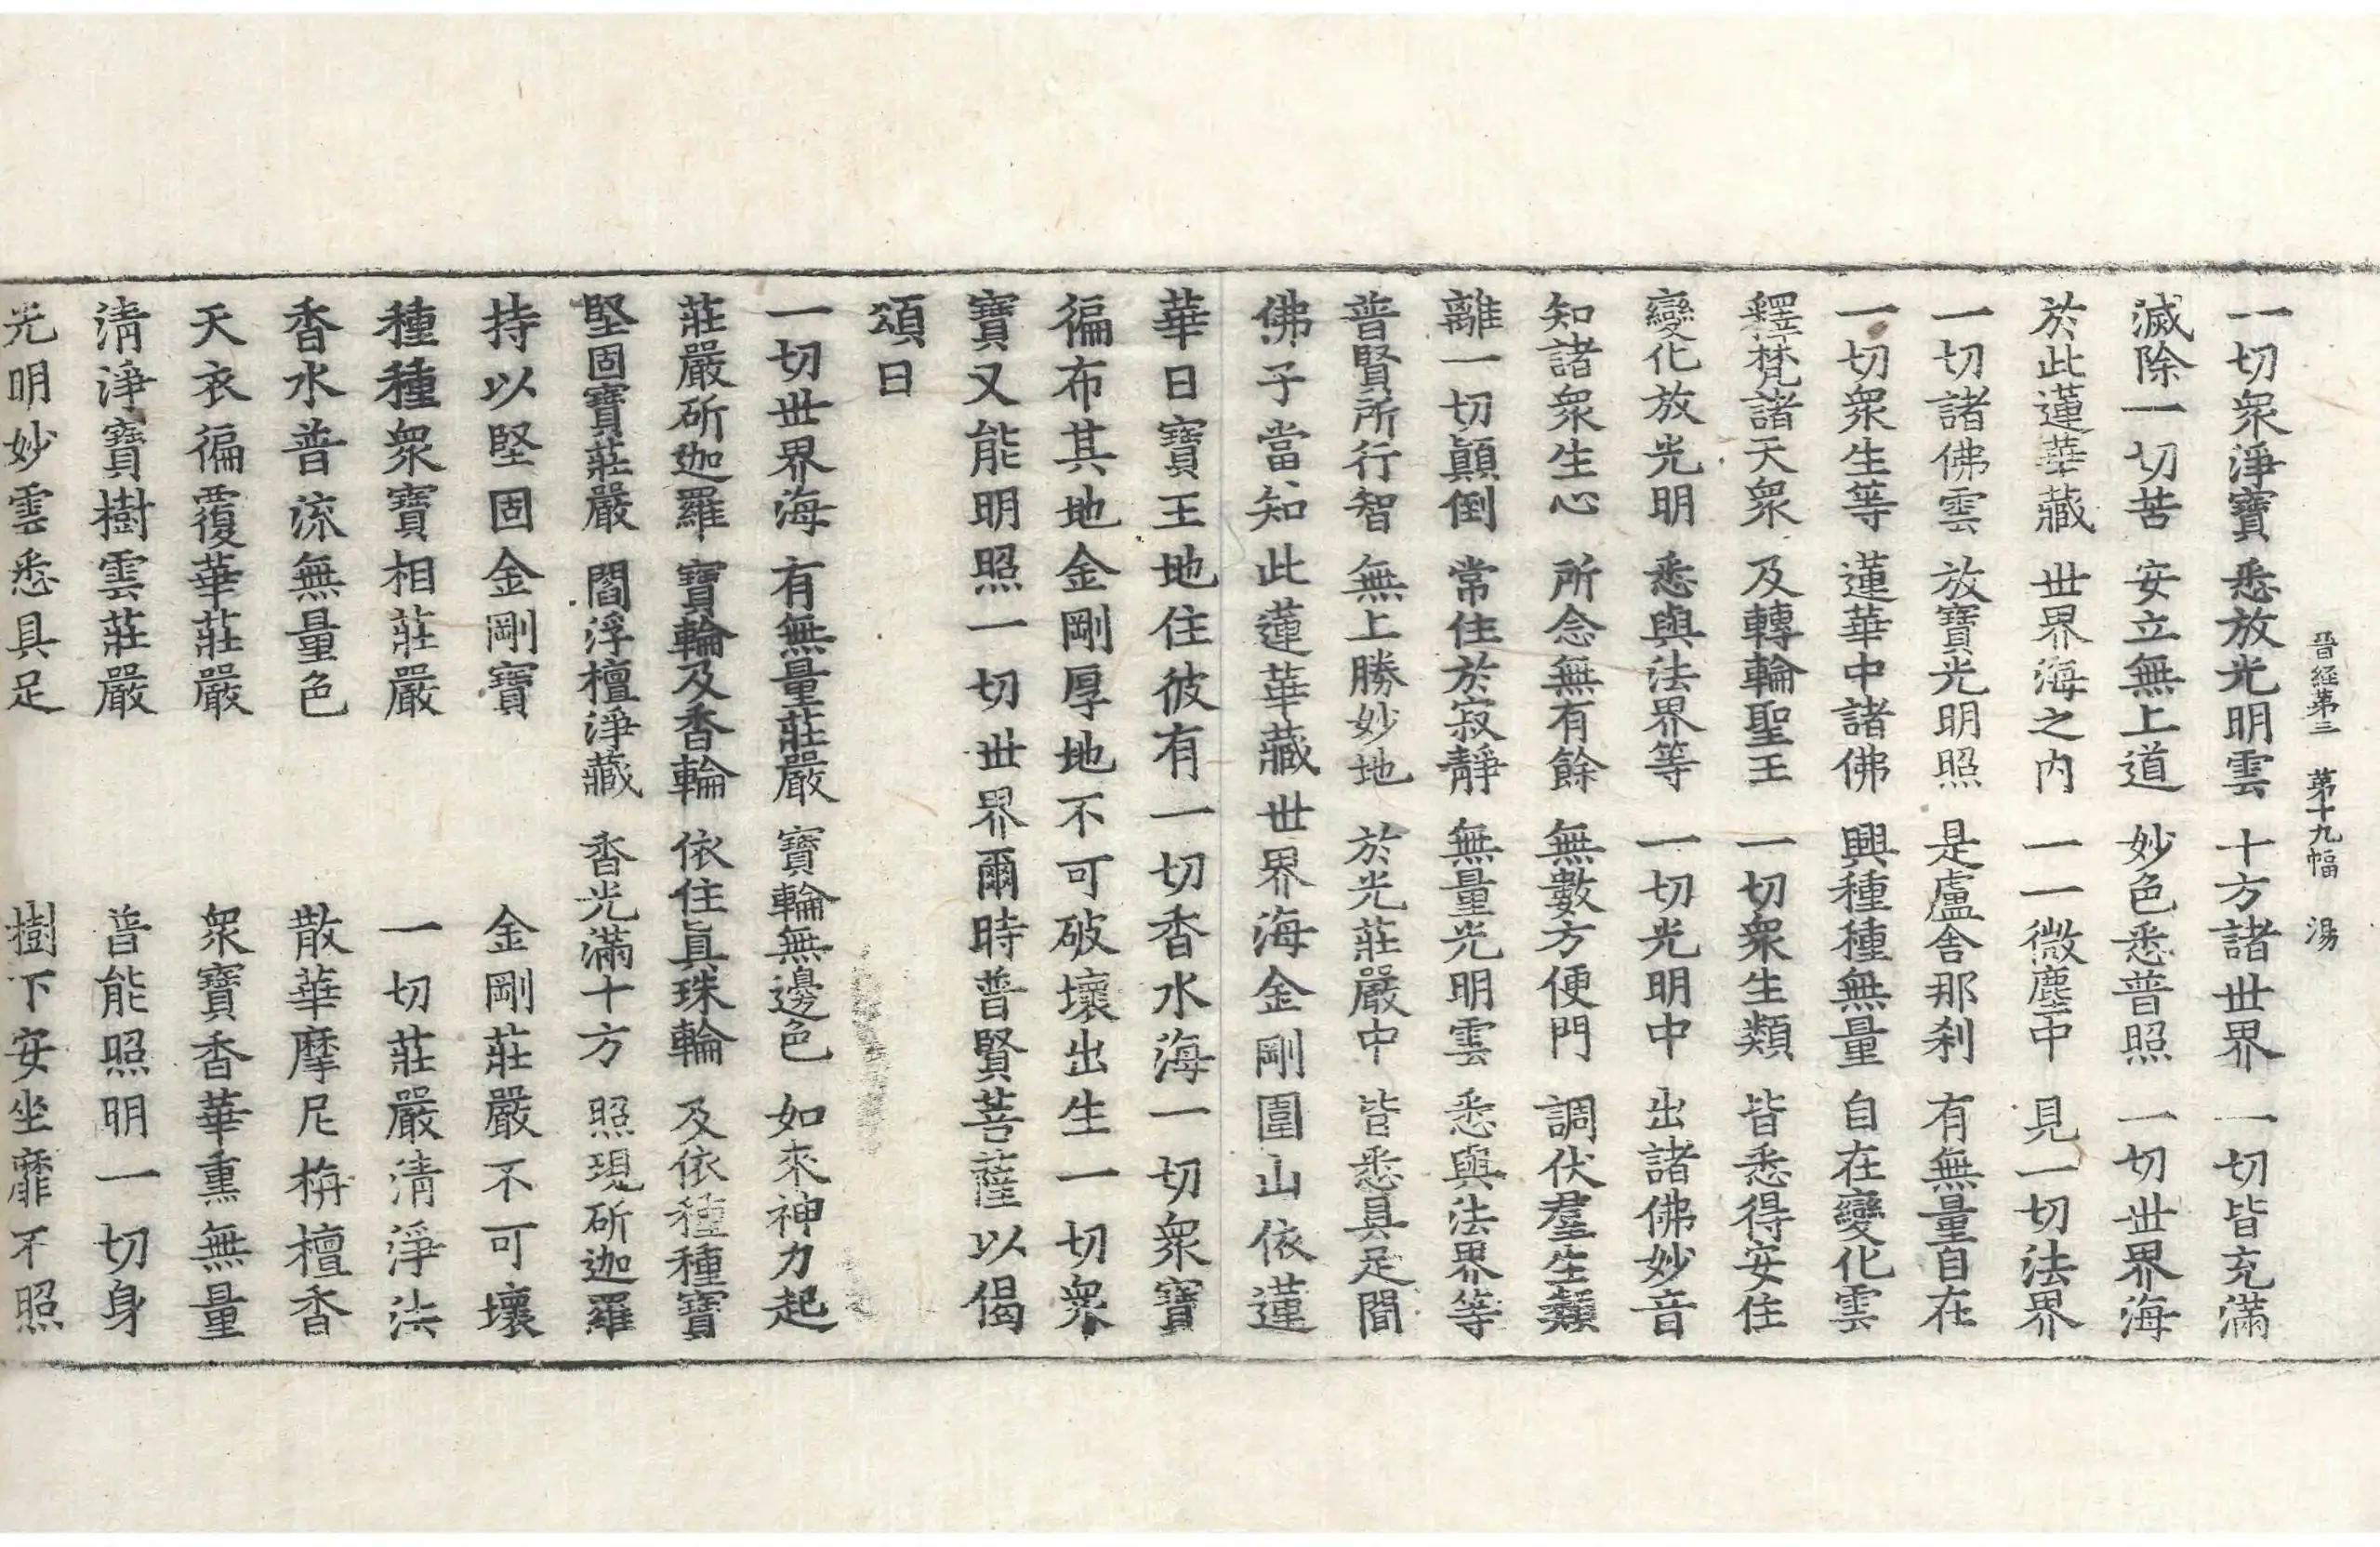 晉經第三 第十九幅 湯
一切衆淨寶 悉放光明雲 十方諸世界 一切皆充滿
滅除一切苦 安立無上道 妙色悉普照 一切世界海
於此蓮華藏 世界海之内 一一微塵中 見一切法界
一切諸佛雲 放寶光明照 是盧舍那刹 有無量自在
一切衆生等 蓮華中諸佛 興種種無量 自在變化雲
釋梵諸天衆 及轉輪聖王 一切衆生類 皆悉得安住
變化放光明 悉與法界等 一切光明中 出諸佛妙音
知諸衆生心 所念無有餘 無數方便門 調伏羣生類
離一切顛倒 常住於寂靜 無量光明雲 悉與法界等
普賢所行智 無上勝妙地 於光莊嚴中 皆悉具足聞
佛子當知此蓮華藏世界海金剛圍山依蓮
華日寶王地住彼有一切香水海一切衆寶
徧布其地金剛厚地不可破壞出生一切衆
寶又能明照一切世界爾時普賢菩薩以偈
頌曰
一切世界海 有無量莊嚴 寶輪無邊色 如來神力起
莊嚴斫迦羅 寶輪及香輪 依住眞珠輪 及依種種寶
堅固寶莊嚴 閻浮檀淨藏 香光滿十方 照現斫迦羅
持以堅固金剛寶 金剛莊嚴不可壞
種種衆寶相莊嚴 一切莊嚴清淨法
香水普流無量色 散華摩尼栴檀香
天衣徧覆華莊嚴 衆寶香華熏無量
清淨寶樹雲莊嚴 普能照明一切身
光明妙雲悉具足 樹下安坐靡不照